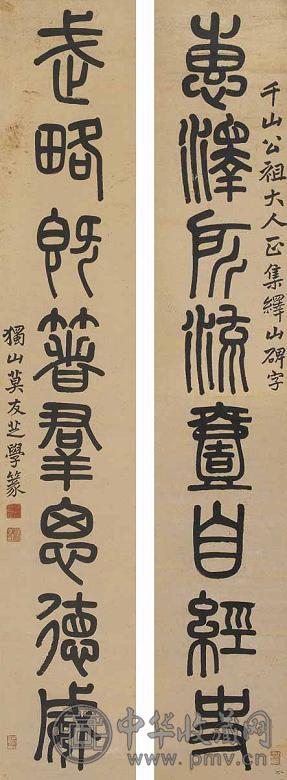 千山公祖大人正集繹山碑字
惠澤所流壹自經史
武略既箸羣思德威
獨山莫友芝學篆
中华收藏网
www.pmv.cn